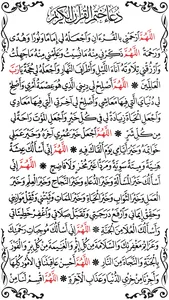 دعاء ختم القرآن الكريم
اللَّهُمَّ ارْحَمْنِي بِالْقُرْءَانِ وَاجْعَلْهُ لِي إِمَامًا وَنُورًا وَهُدًى
وَرَحْمَةً ۞ اللَّهُمَّ ذَكِّرْنِي مِنْهُ مَانَسِيتُ وَعَلِّمْنِي مِنْهُ مَاجَهِلْتُ
وَارْزُقْنِي تِلَاوَتَهُ آنَاءَ اللَّيْلِ وَأَطْرَافَ النَّهَارِ وَاجْعَلْهُ لِي حُجَّةً يَارَبَّ
الْعَالَمِينَ ۞ اللَّهُمَّ أَصْلِحْ لِي دِينِي الَّذِي هُوَ عِصْمَةُ أَمْرِي وَأَصْلِحْ
لِي دُنْيَايَ الَّتِي فِيهَا مَعَاشِي وَأَصْلِحْ لِي آخِرَتِي الَّتِي فِيهَا مَعَادِي
وَاجْعَلِ الْحَيَاةَ زِيَادَةً لِي فِي كُلِّ خَيْرٍ وَاجْعَلِ الْمَوْتَ رَاحَةً لِي
مِنْ كُلِّ شَرٍّ ۞ اللَّهُمَّ اجْعَلْ خَيْرَ عُمْرِي آخِرَهُ وَخَيْرَ عَمَلِي
خَوَاتِمَهُ وَخَيْرَ أَيَّامِي يَوْمَ أَلْقَاكَ فِيهِ ۞ اللَّهُمَّ إِنِّي أَسْأَلُكَ عِيشَةً
هَنِيَّةً وَمِيتَةً سَوِيَّةً وَمَرَدًّا غَيْرَ مُخْزٍ وَلَا فَاضِحٍ ۞ اللَّهُمَّ إِنِّي
أَسْأَلُكَ خَيْرَ الْمَسْأَلَةِ وَخَيْرَ الدُّعَاءِ وَخَيْرَ النَّجَاحِ وَخَيْرَ الْعِلْمِ وَخَيْرَ
الْعَمَلِ وَخَيْرَ الثَّوَابِ وَخَيْرَ الْحَيَاةِ وَخَيْرَ الْمَمَاتِ وَثَبِّتْنِي وَثَقِّلْ مَوَازِينِي
وَحَقِّقْ إِيمَانِي وَارْفَعْ دَرَجَتِي وَتَقَبَّلْ صَلَاتِي وَاغْفِرْ خَطِيئَاتِي
وَأَسْأَلُكَ الْعُلَا مِنَ الْجَنَّةِ ۞ اللَّهُمَّ إِنِّي أَسْأَلُكَ مُوجِبَاتِ رَحْمَتِكَ
وَعَزَائِمَ مَغْفِرَتِكَ وَالسَّلَامَةَ مِنْ كُلِّ إِثْمٍ وَالْغَنِيمَةَ مِنْ كُلِّ بِرٍّ وَالْفَوْزَ
بِالْجَنَّةِ وَالنَّجَاةَ مِنَ النَّارِ ۞ اللَّهُمَّ أَحْسِنْ عَاقِبَتَنَا فِي الْأُمُورِ كُلِّهَا
وَأَجِرْنَا مِنْ خِزْيِ الدُّنْيَا وَعَذَابِ الْآخِرَةِ ۞ اللَّهُمَّ اقْسِمْ لَنَا مِنْ